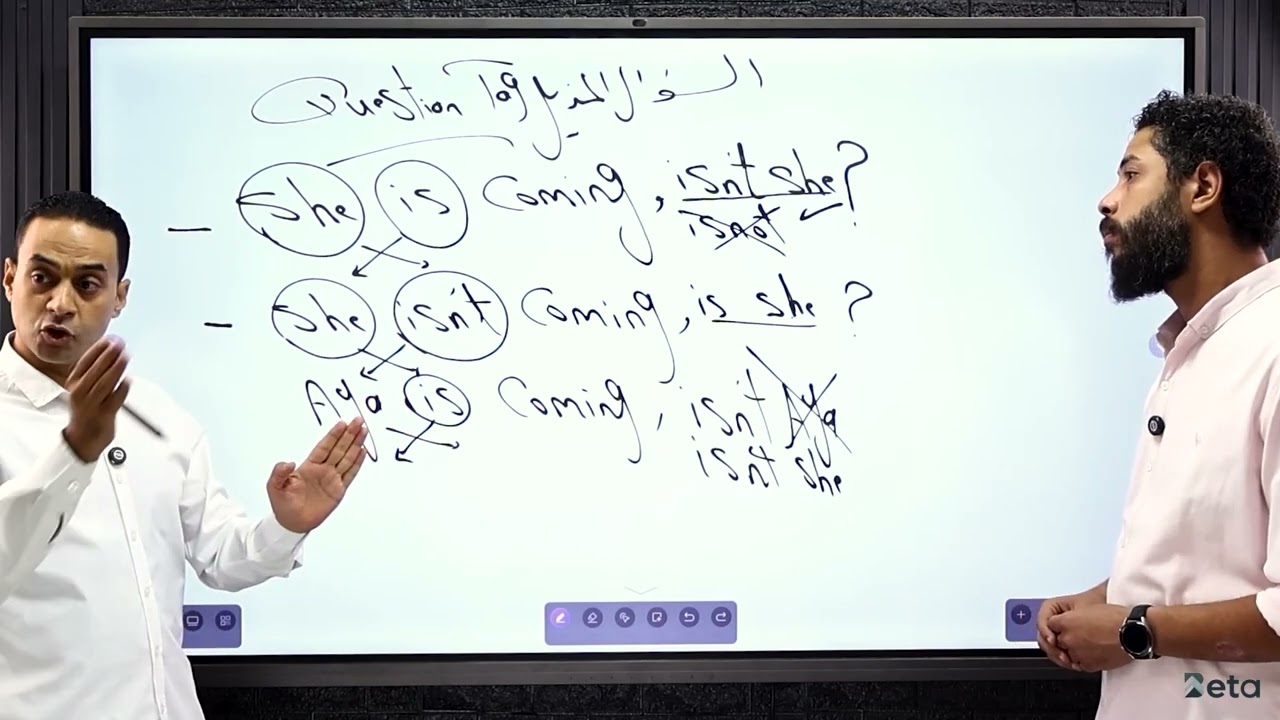 Question Tag السؤال المذيل
- she is coming, isn't she?
isnot
- she isn't coming, is she ?
Aya is coming, isn't Aya
isn't she
Beta